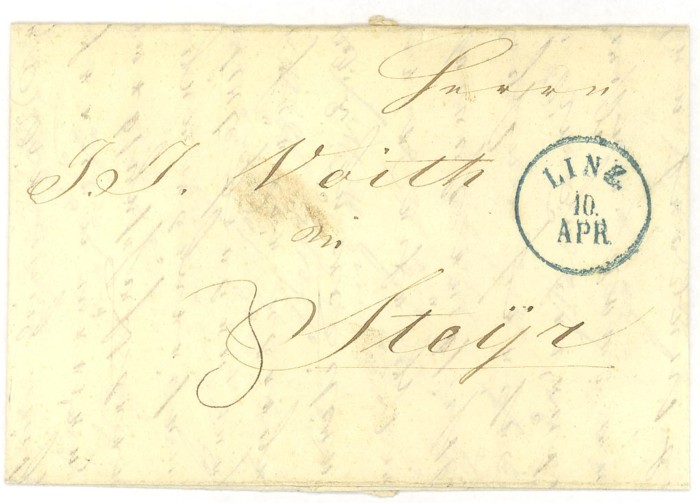 Herrn
J. J. Voith
in
Steÿr
LINZ.
10.
APR.